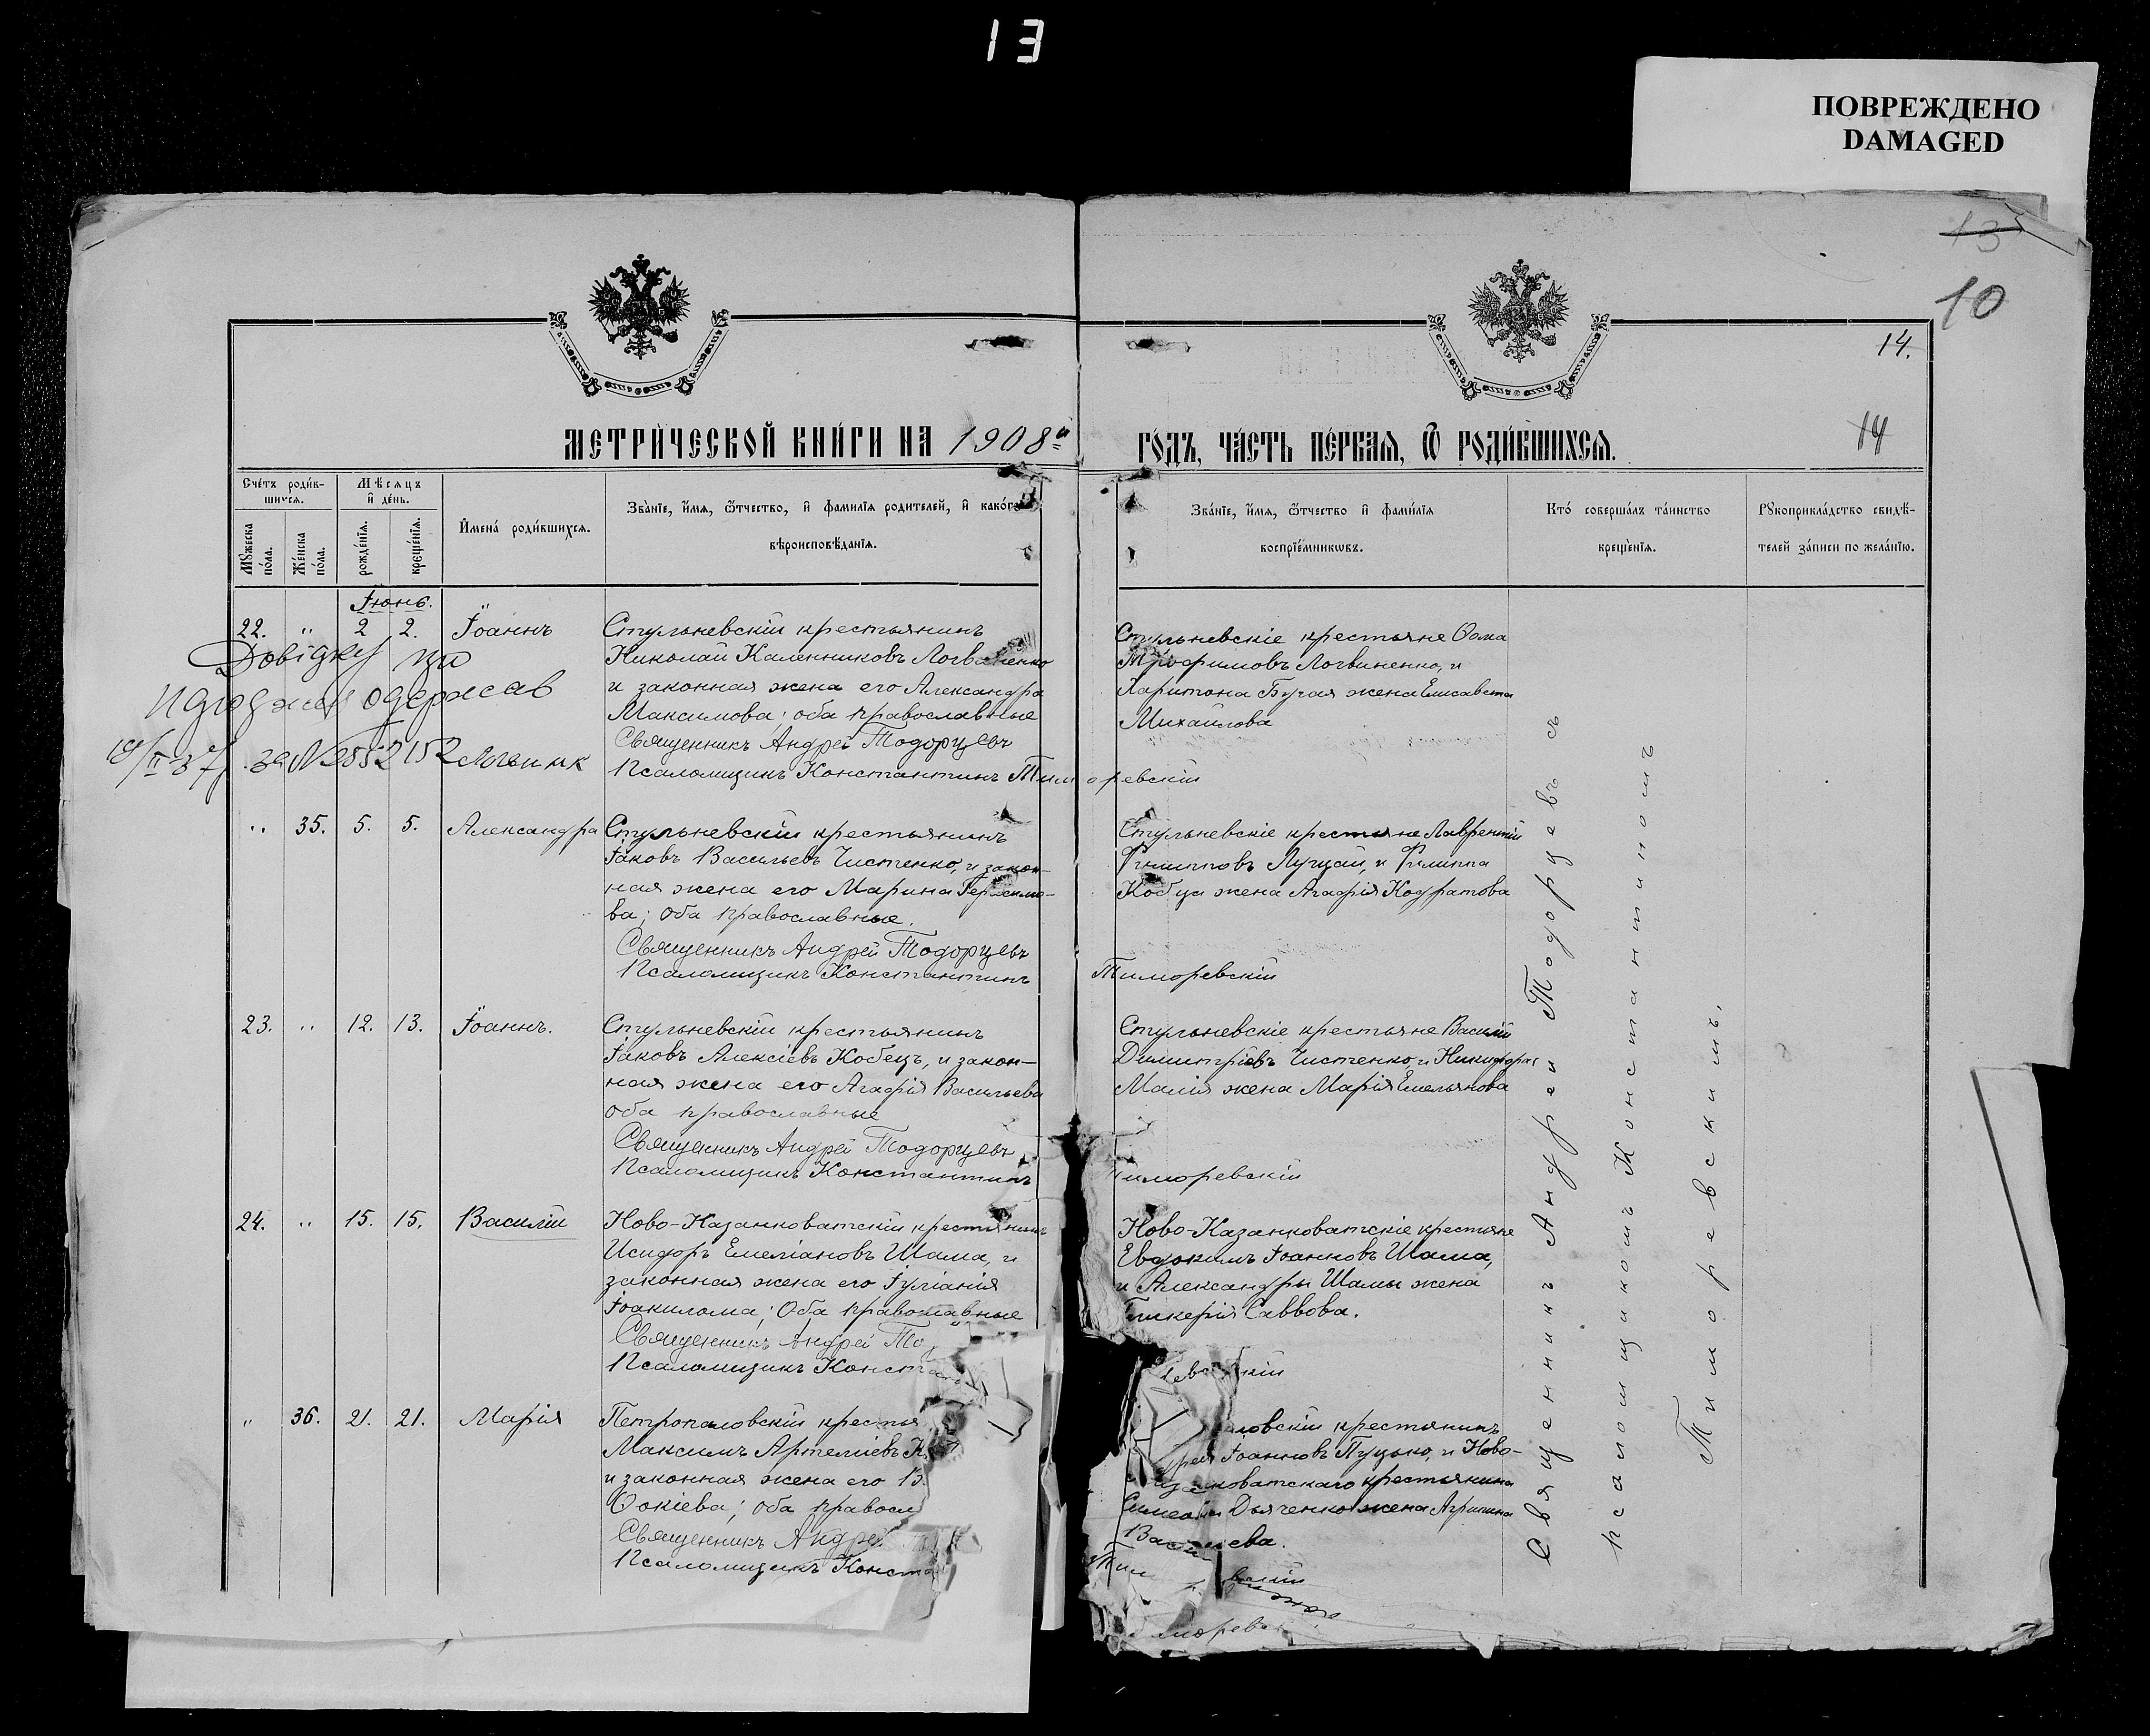 13
ПОВРЕЖДЕНО
DAMAGED
13
10
14.
14
МЕТРИЧЕСКОЙ КНИГИ НА 1908й
ГОДЪ, ЧАСТЬ ПЕРВАЯ, Ѿ РОДИВШИХСЯ.
Счетъ родив-
шихся.
Мѣсяцъ
и день.
Мужеска
пола.
Женска
пола.
рожденія.
крещенія.
Имена родившихся.
Званіе, имя, ѿчество, и фамилія родителей, и какого
вѣроисповѣданія.
Званіе, имя, ѿчество и фамилія
воспріемниковъ.
Кто совершалъ таинство
крещенія.
Рукоприкладство свидѣ-
телей записи по желанію.
Іюнь.
22. " 2 2. Іоаннъ
Стульневскій крестьянинъ
Николай Каленниковъ Логвиненко
и законная жена его Александра
Максимова; оба православные
Священникъ Андрей Тодорцевъ
Псаломщикъ Константинъ Тиморевскій
Стульневскіе крестьяне Ѳома
Трофимовъ Логвиненко, и
Харитона Бугая жена Елисавета
Михаилова
Довідку про
одержав
за №
" 35. 5. 5. Александра
Стульневскій крестьянинъ
Іаковъ Васильевъ Чистенко, и закон-
ная жена его Марина Герасимо-
ва; оба православные.
Священникъ Андрей Тодорцевъ
Псаломщикъ Константинъ Тиморевскій
Стульневскіе крестьяне Лаврентій
Филипповъ Луцай, и Филиппа
Кобца жена Агафія Кодратова
23. " 12. 13. Іоаннъ.
Стульневскій крестьянинъ
Іаковъ Алексіевъ Кобецъ, и закон-
ная жена его Агафія Васильева
оба православные
Священникъ Андрей Тодорцевъ
Псаломщикъ Константинъ Тиморевскій
Стульневскіе крестьяне Василій
Димитріевъ Чистенко, и Никифора
Малія жена Марія Емельянова
24. " 15. 15. Василій
Ново-Казанковатскій крестьянинъ
Исидоръ Емеліановъ Шама, и
законная жена его Іуліанія
Іоакимова; Оба православные
Священникъ Андрей То
Псаломщикъ Конста
Ново-Казанковатскіе крестьяне
Евдокимъ Іоанновъ Шама,
и Александры Шамы жена
Гликерія Саввова.
" 36. 21. 21. Марія
Петропаловскій крестья
Максимъ Артеміевъ К
и законная жена его В
Ѳокіева; оба правосл
Священникъ Андре
Псаломщикъ Конста
ловскій крестьянинъ
Іоанновъ Пуцько, и Ново-
коватскаго крестьянина
Симеона Дьяченко жена Агрипина
Васильева.
Священникъ Андрей Тодорцевъ съ
псаломщикомъ Константиномъ
Тиморевскимъ.